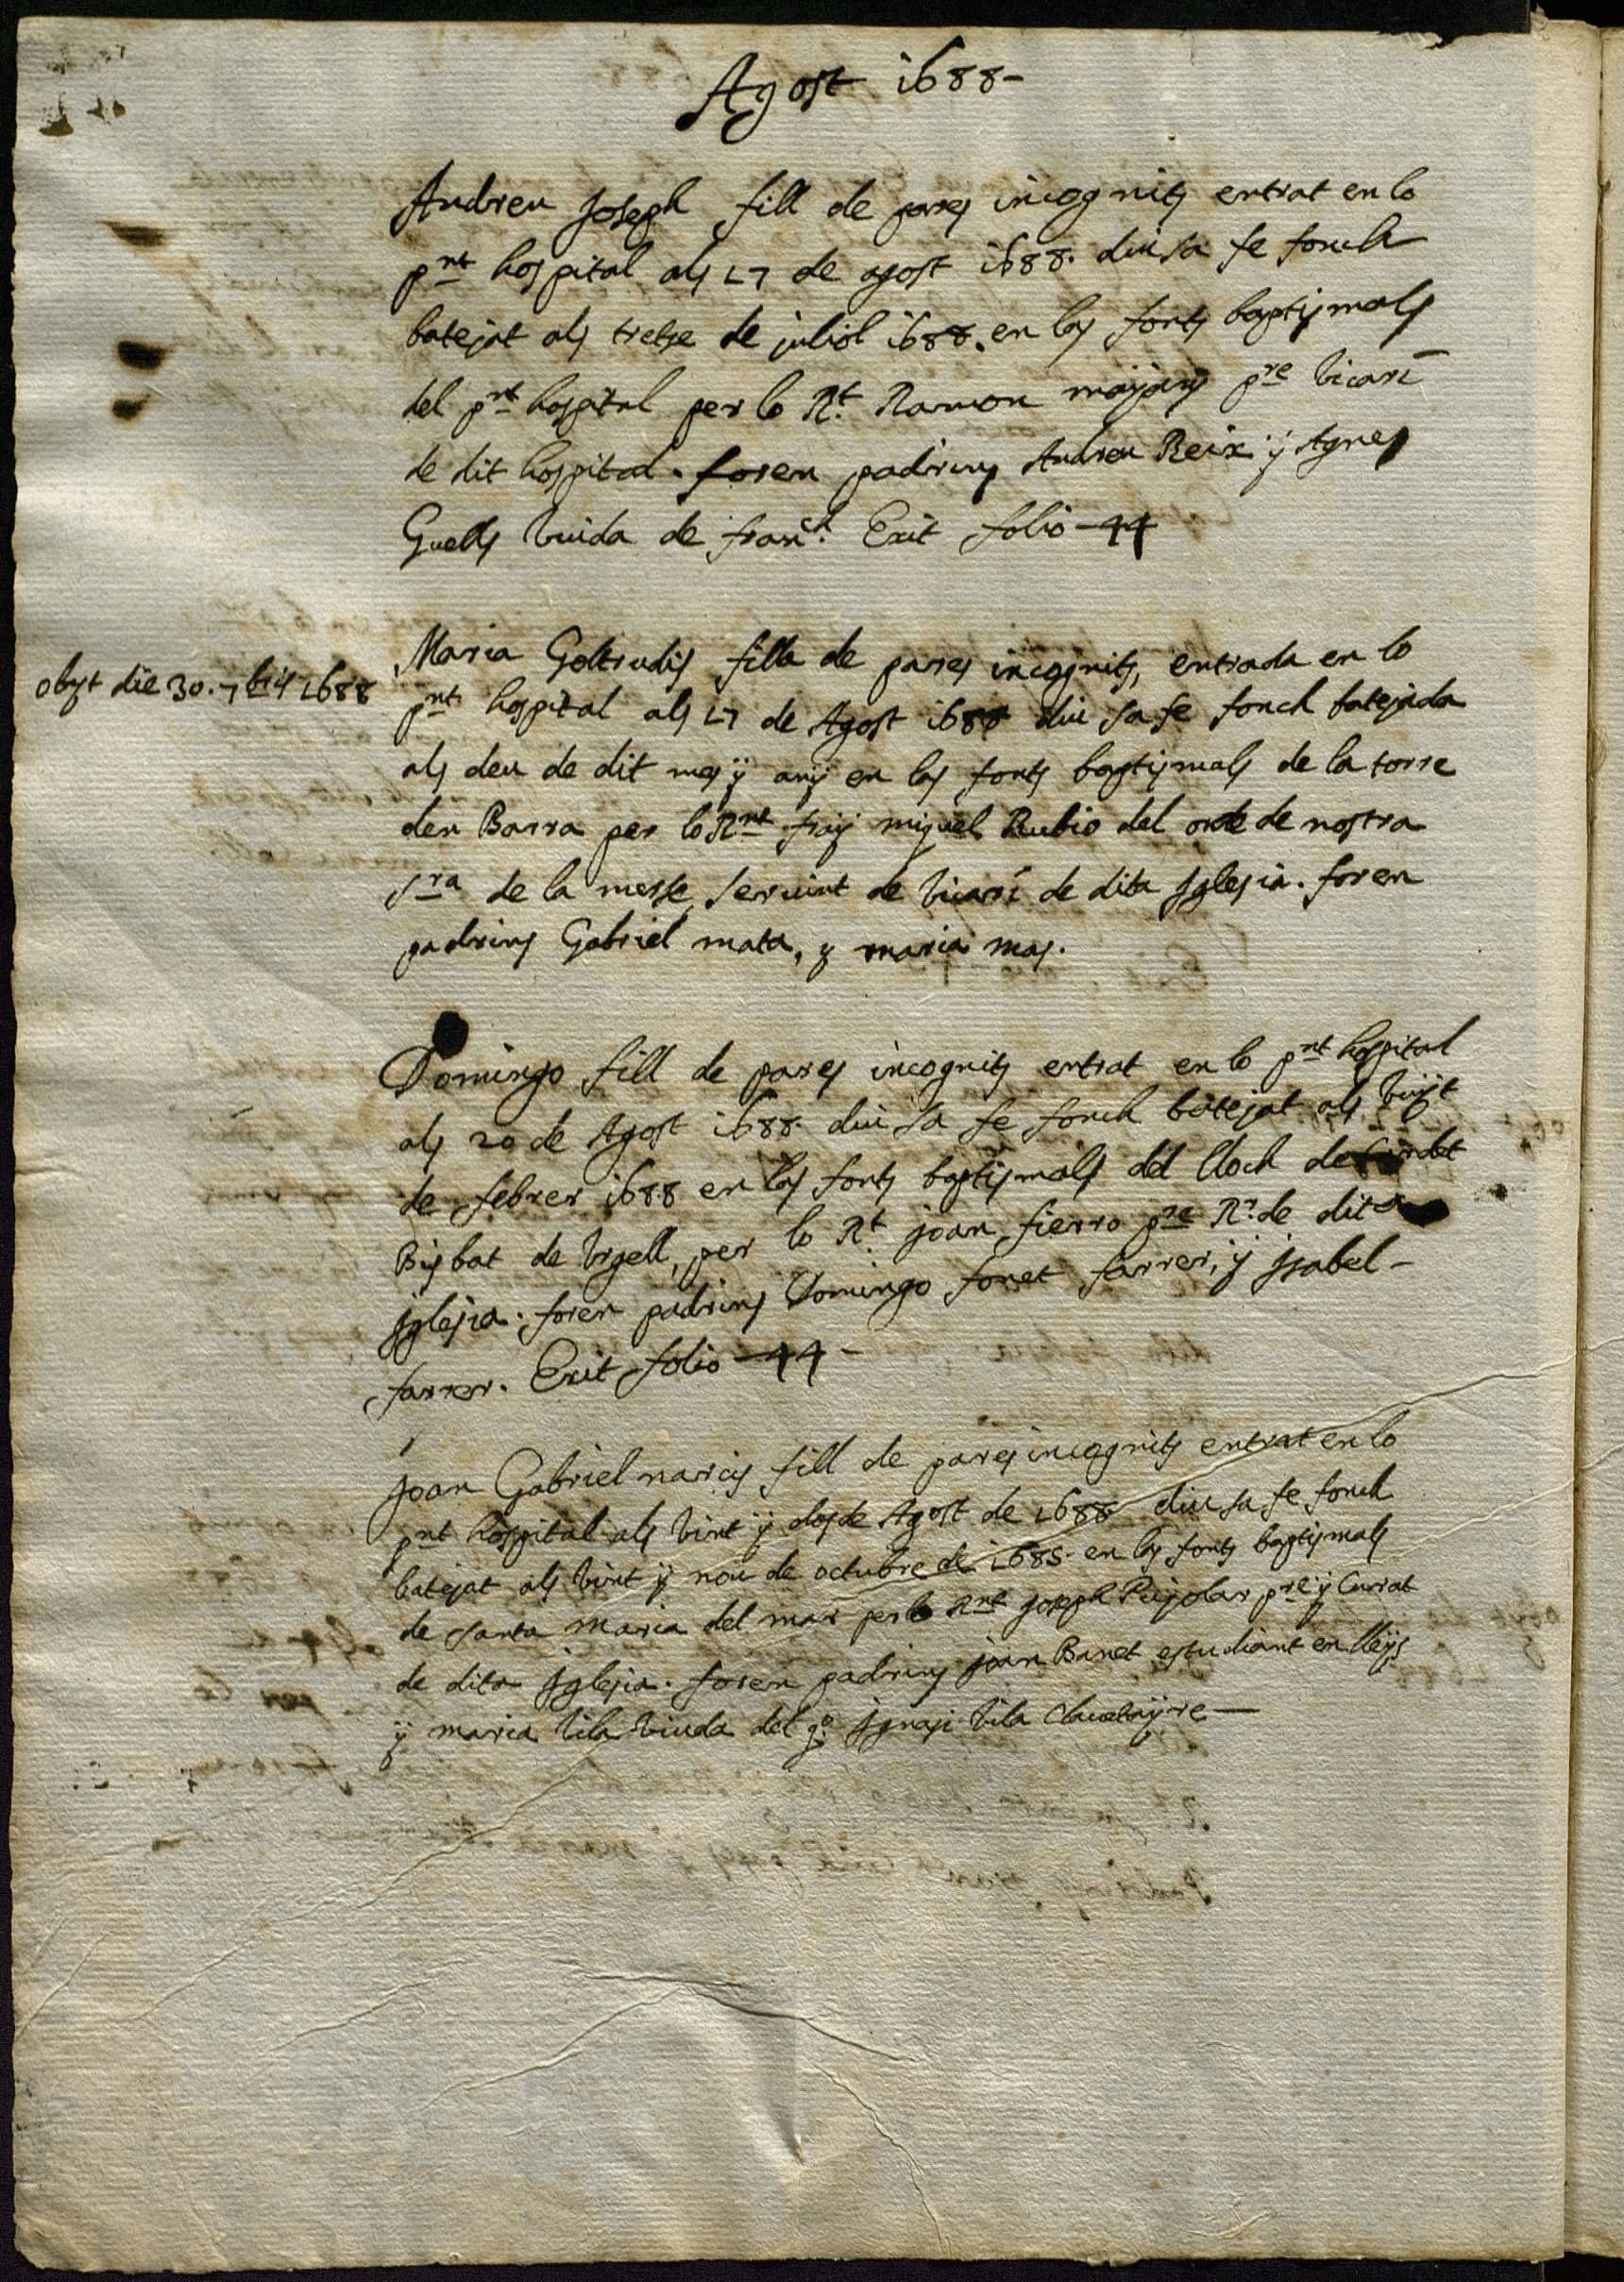 Agost 1688-
Andreu Joseph fill de pares incognits entrat en lo
pnt hospital als 17 de agost 1688. diu sa fe fonch
batejat als tretse de juliol 1688. en las fonts baptismals
del pnt hospital per lo Rt. Ramon majany pre vicari
de dit hospital. foren padrins Andreu Reix ÿ Agnes
Guells viuda de franch. Exit folio 44
obyt die 30. 7bris 1688
Maria Geltrudis filla de pares incognits, entrada en lo
pnt hospital als 17 de Agost 1688 diu sa fe fonch batejada
als deu de dit mes ÿ anÿ en las fonts baptismals de la torre
den Barra per lo Rnt fraÿ miquel Rubio del orde de nostra
sra de la merse, servint de vicari de dita Iglesia. foren
padrins Gabriel mata, y maria mas.
Domingo fill de pares incognits entrat en lo pnt hospital
als 20 de Agost 1688. diu sa fe fonch batejat als vuÿt
de febrer 1688 en las fonts baptismals del lloch de
Bisbat de Vrgell, per lo Rt joan fierro pre Rr. de dita
Iglesia. foren padrins Domingo fonet farrer, ÿ Isabel-
farrer. Exit folio 44-
Joan Gabriel narcis fill de pares incognits entrat en lo
pnt hospital als vint ÿ dos de Agost de 1688 diu sa fe fonch
batejat als vint ÿ nou de octubre de 1685. en las fonts baptismals
de santa maria del mar per lo Rnt Joseph Pujolar pre ÿ Currat
de dita Iglesia. foren padrins joan Banet estudiant en lleÿs
ÿ maria vila viuda del qo. Ignasi vila Clavetaÿre—